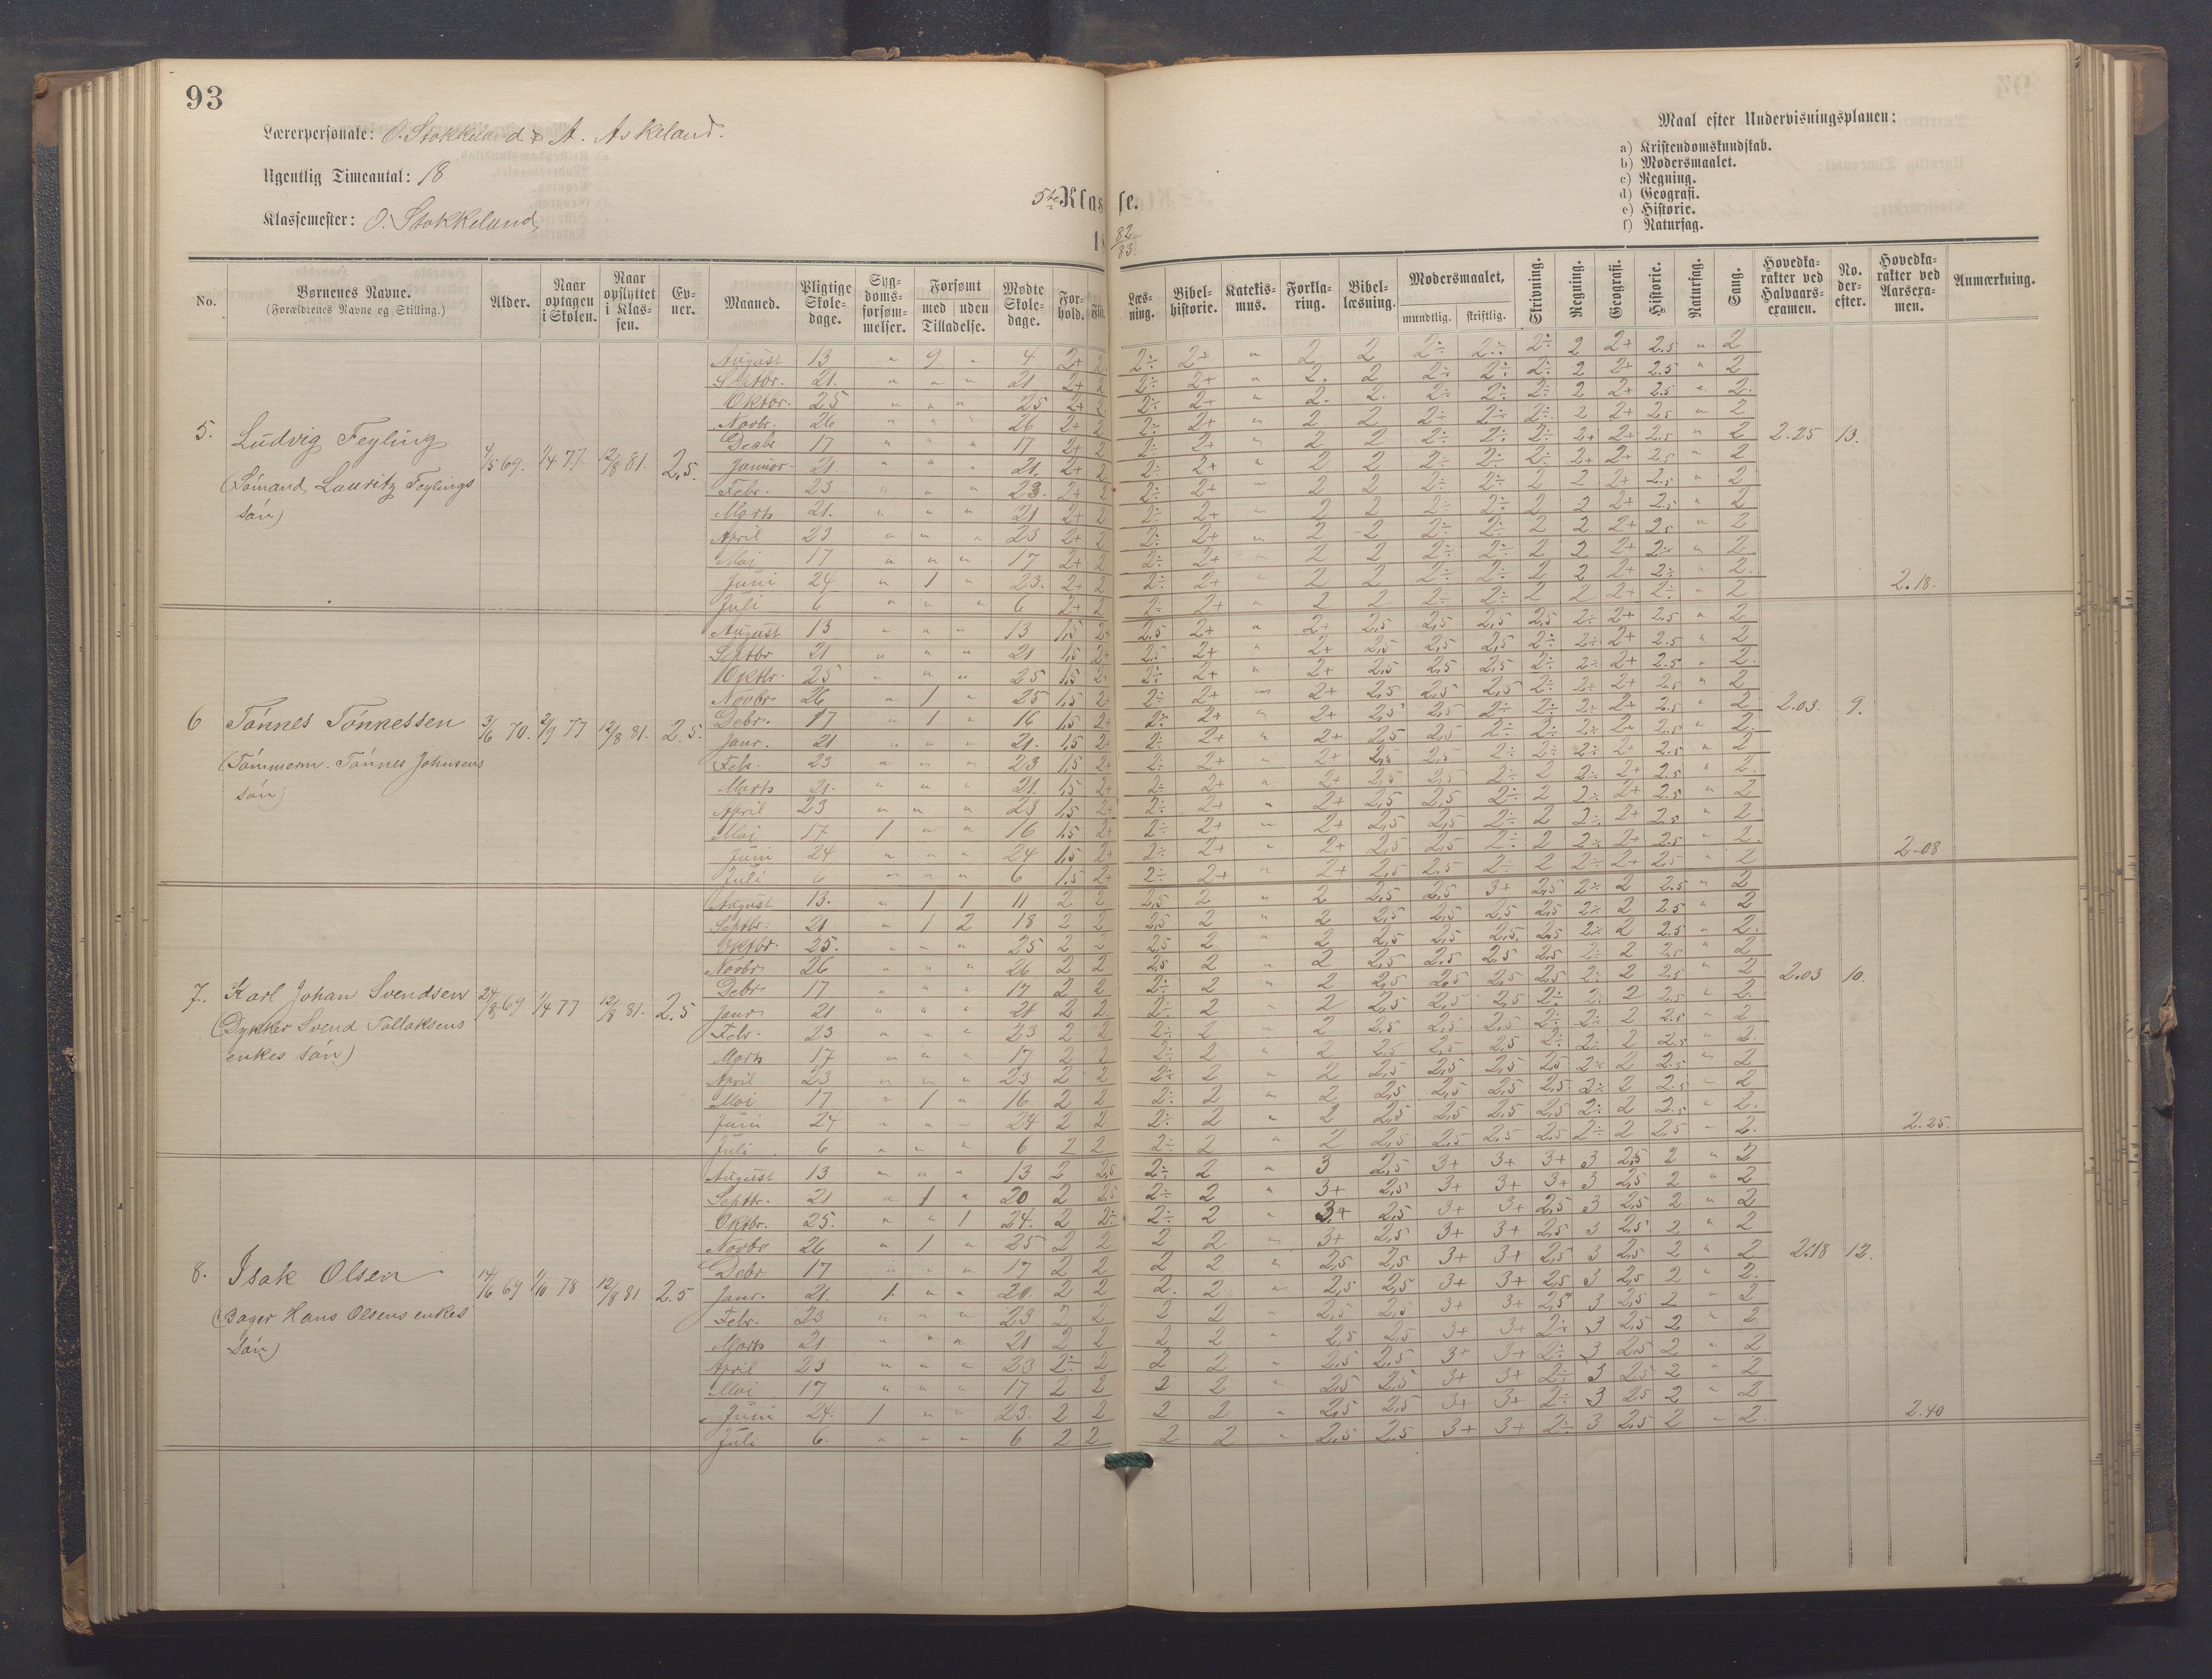 93
Lærerpersonale: O. Stokkeland & A. Askeland.
Ugentlig Timeantal: 18
Klassemester: O. Stokkeland
5te Klasse.
18 82/83.
Maal efter Undervisningsplanen:
a) Kristendomskundskab.
b) Modersmaalet.
c) Regning.
d) Geografi.
e) Historie.
f) Naturfag.
No. Børnenes Navne. (Forældrenes Navne og Stilling.) Alder. Naar optagen i Skolen. Naar opflyttet i Klassen. Evner. Maaned. Pligtige Skoledage. Sygdomsforsømmelser. Forsømt med uden Tilladelse. Mødte Skoledage. Forhold. Læsning. Bibelhistorie. Katekismus. Forklaring. Bibellæsning. Modersmaalet, mundtlig. skriftlig. Skrivning. Regning. Geografi. Historie. Naturfag. Sang. Hovedkarakter ved Halvaarsexamen. No. derefter. Hovedkarakter ved Aarsexamen. Anmærkning.
August 13 " 9 " 4 2+ 2 2÷ 2+ " 2 2 2÷ 2÷ 2÷ 2 2+ 2.5 " 2
Septbr. 21. " " " 21 2+ 2 2÷ 2+ " 2. 2 2÷ 2÷ 2÷ 2 2+ 2.5 " 2
Oktbr. 25 " " " 25 2+ 2 2÷ 2+ " 2. 2. 2÷ 2÷ 2÷ 2 2+ 2.5 " 2.
Novbr. 26 " " " 26 2+ 2 2÷ 2+ " 2 2 2÷ 2÷ 2÷ 2 2+ 2.5 " 2
5. Ludvig Feyling 4/5 69. 1/4 77 12/8 81. 2,5.
(Sömand, Lauritz Feylings
sön)
Decbr. 17 " " " 17 2+ 2 2÷ 2+ " 2 2 2÷ 2÷ 2÷ 2+ 2+ 2.5 " 2 2.25 13.
Januar. 21. " " " 21. 2+ 2 2÷ 2+ " 2 2 2÷ 2÷ 2÷ 2+ 2+ 2.5 " 2
Febr. 23 " " " 23. 2+ 2 2÷ 2+ " 2 2 2÷ 2÷ 2 2 2+ 2.5 " 2
Marts 21. " " " 21 2+ 2 2÷ 2+ " 2 2 2÷ 2÷ 2 2 2+ 2.5 " 2
April 23 " " " 23 2+ 2 2÷ 2+ " 2 2 2÷ 2÷ 2 2 2+ 2.5 " 2
Mai 17 " " " 17 2+ 2 2÷ 2+ " 2 2 2÷ 2÷ 2 2 2+ 2÷ " 2
Juni 24 " 1 " 23. 2+ 2 2÷ 2+ " 2 2 2÷ 2÷ 2 2 2+ 2÷ " 2. 2.18.
Juli 6 " " " 6 2+ 2 2÷ 2+ " 2 2 2÷ 2÷ 2 2 2+ 2÷ " 2
August 13 " " " 13 1,5 2+ 2.5 2+ " 2+ 2,5 2,5 2,5 2,5 2÷ 2+ 2.5 " 2
Septbr 21 " " " 21 1,5 2+ 2.5 2+ " 2+ 2,5 2,5 2,5 2÷ 2÷ 2+ 2.5 " 2
Oktbr. 25 " " " 25 1,5 2+ 2÷ 2+ " 2+ 2,5 2,5 2,5 2÷ 2÷ 2+ 2.5 " 2.
Novbr. 26 " 1 " 25 1,5 2+ 2÷ 2+ " 2+ 2,5 2,5 2,5 2÷ 2÷ 2+ 2.5 " 2
6 Tönnes Tönnessen 3/6 70. 2/9 77 12/8 81. 2.5.
(Tömmerm. Tönnes Johnsens
sön)
Debr. 17 " 1 " 16 1,5 2+ 2÷ 2+ " 2+ 2,5 2,5 2÷ 2÷ 2÷ 2+ 2.5 " 2 2.03. 9.
Janr. 21 " " " 21. 1,5 2+ 2÷ 2+ " 2+ 2,5 2,5 2÷ 2÷ 2÷ 2+ 2.5 " 2.
Febr. 23 " " " 23 1,5 2+ 2÷ 2+ " 2+ 2,5 2,5 2÷ 2÷ 2÷ 2+ 2.5 " 2
Marts 21. " " " 21. 1,5 2+ 2÷ 2+ " 2+ 2,5 2,5 2÷ 2 2÷ 2+ 2.5 " 2.
April 23 " " " 23 1,5 2+ 2÷ 2+ " 2+ 2,5 2,5 2÷ 2 2÷ 2+ 2.5 " 2
Mai 17 1 " " 16 1,5 2+ 2÷ 2+ " 2+ 2,5 2,5 2÷ 2 2÷ 2+ 2.5 " 2
Juni 24 " " " 24 1,5 2+ 2÷ 2+ " 2+ 2,5 2,5 2÷ 2 2÷ 2+ 2.5 " 2. 2.08
Juli 6 " " " 6 1,5 2+ 2÷ 2+ " 2+ 2,5 2.5 2÷ 2 2÷ 2+ 2.5 " 2
August 13. " 1 1 11 2 2 2,5 2 " 2 2,5 2,5 3+ 2,5 2÷ 2 2.5 " 2
Septbr. 21 " 1 2 18 2 2 2,5 2 " 2 2,5 2,5 2,5 2,5 2÷ 2 2.5 " 2
Oktbr. 25. " " " 25 2 2 2,5 2 " 2 2,5 2,5 2,5 2,5 2÷ 2 2.5 " 2.
Novbr. 26 " " " 26 2 2 2,5 2 " 2 2,5 2.5 2.5 2,5 2÷ 2 2,5 " 2
7. Karl Johan Svendsen 24/8 69 1/4 77 12/8 81. 2.5
(Dykker Svend Tollaksens
enkes sön)
Debr. 17 " " " 17 2 2 2÷ 2 " 2 2,5 2,5 2,5 2,5 2÷ 2 2.5 " 2 2.03 10.
Janr 21 " " " 21 2 2 2÷ 2 " 2 2,5 2,5 2,5 2÷ 2÷ 2 2.5 " 2.
Febr. 23 " " " 23 2 2 2÷ 2 " 2 2,5 2,5 2,5 2÷ 2÷ 2 2.5 " 2
Marts 17 " " " 17 2 2 2÷ 2 " 2 2,5 2,5 2,5 2÷ 2÷ 2 2.5 " 2.
April 23 " " " 23 2 2 2÷ 2 " 2 2,5 2,5 2,5 2,5 2÷ 2 2.5 " 2
Mai 17 " 1 " 16 2 2 2÷ 2 " 2 2,5 2,5 2,5 2,5 2÷ 2 2.5 " 2
Juni 24 " " " 24 2 2 2÷ 2 " 2 2,5 2,5 2,5 2,5 2÷ 2 2.5 " 2. 2.25.
Juli 6 " " " 6 2 2 2÷ 2 " 2 2,5 2,5 2,5 2,5 2÷ 2 2.5 " 2.
August 13 " " " 13 2 2,5 2÷ 2 " 3 2,5 3+ 3+ 3+ 3 2,5 2 " 2
Septbr. 21 " 1 " 20 2 2,5 2÷ 2 " 3+ 2,5 3+ 3+ 3+ 3 2,5 2 " 2
Oktbr. 25. " " 1 24. 2 2÷ 2÷ 2 " 3+ 2,5 3+ 3+ 2,5 3 2,5 2 " 2
Novbr 26 " 1 " 25 2 2 2 2 " 3+ 2,5 3+ 3+ 2,5 3 2,5 2 " 2
8. Isak Olsen 14/6 69 1/10 78 12/8 81 2.5
(Bager Hans Olsens enkes
sön)
Debr 17 " " " 17 2 2 2 2 " 2,5 2,5 3+ 3+ 2,5 3 2,5 2 " 2 2.18 12.
Janr. 21. 1. " " 20. 2 2 2. 2 " 2,5 2,5 3+ 3+ 2,5 3 2,5 2 " 2.
Febr. 23 " " " 23 2 2 2 2 " 2,5 2,5 3+ 3+ 2,5 3 2,5 2 " 2
Marts 21. " " " 21 2 2 2 2 " 2,5 2,5 3+ 3+ 2÷ 3 2,5 2 " 2
April 23 " " " 23 2÷ 2 2 2 " 2,5 2,5 3+ 3+ 2÷ 3 2,5 2 " 2
Mai 17 " " " 17 2 2 2 2 " 2,5 2,5 3+ 3+ 2÷ 3 2,5 2 " 2
Juni 24. 1 " " 23. 2 2 2 2 " 2,5 2,5 3+ 3+ 2÷ 3 2,5 2 " 2 2.40
Juli 6. " " " 6 2 2 2 2 " 2,5 2.5 3+ 3+ 2÷ 3 2,5 2 " 2.